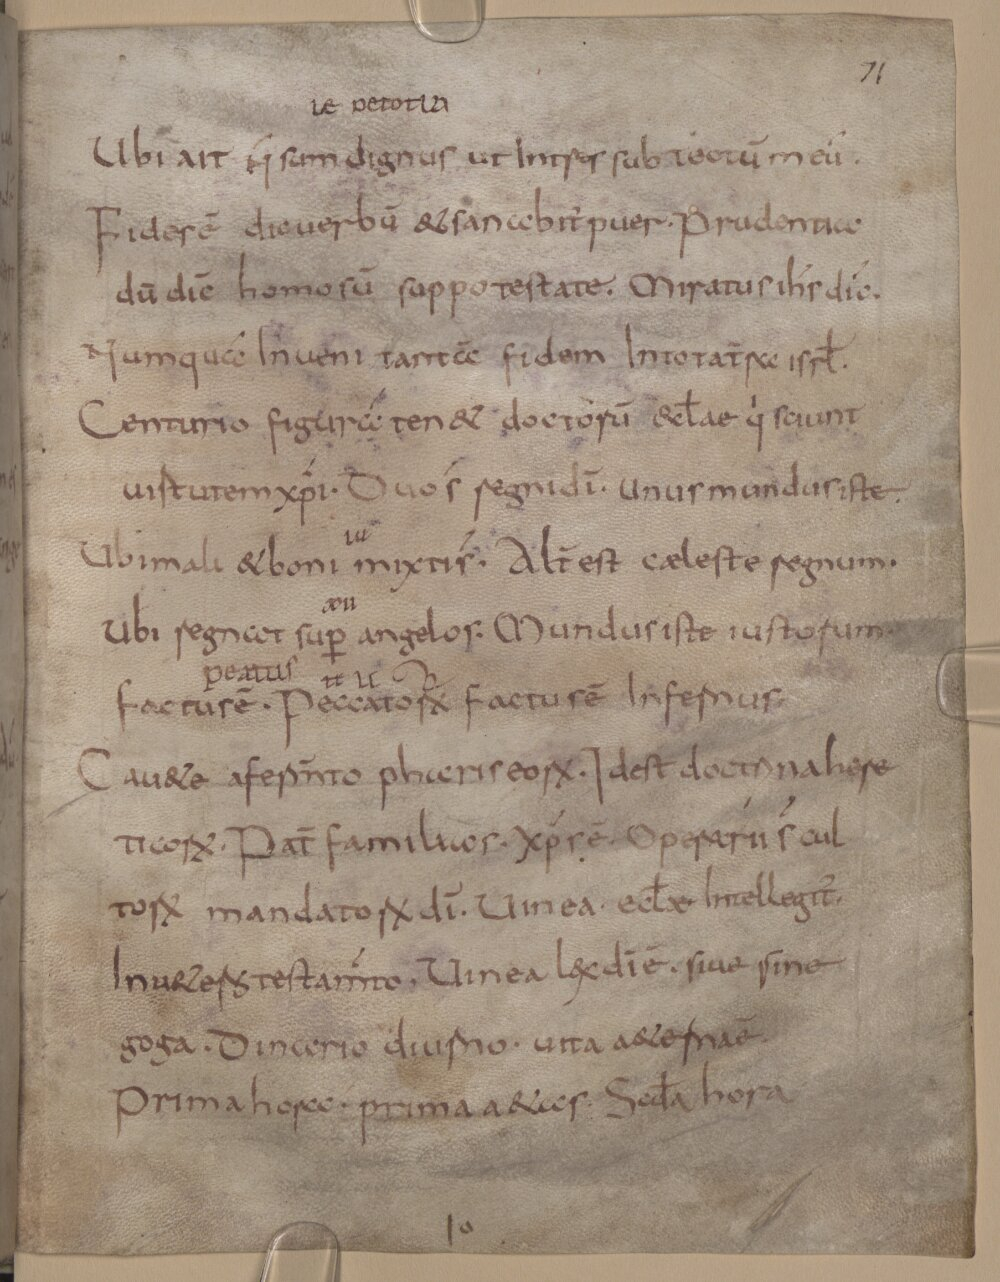 71
Ubi ait q̄ sum dignus ut Intres sub tectū meū.
Fides ē dic uerbū & sanabit̄ puer. Prudentia
dū dic̄ homo sū sup potestate. Miratus ihs̄ dic̄.
Numquā Inueni tantā fidem In tota t̄ra isrl̄.
Centurio figurā ten& doctorū &cl̄ae q̇ sciunt
uirtutem xp̄i. Duo s̄ regni dī. Unus mundus iste.
Ubi mali & boni mixti s̄. Alt̄ est cæleste regnum.
Ubi regnat sup̄ angelos. Mundus iste iustorum
peatus
factus ē. Peccatorꝝ factus ē Infernus.
Cau&e a ferm̄to phariseorꝝ. Idest doctrina here
ticorꝝ. Pat̄ familias. Xp̄s ē. Operarii s̄ cul
torꝝ mandatorꝝ dī. Uinea. ecl̄æ Intellegit̄.
In u&eri testam̄to. Uinea lex dī ē. siue sine
goga. Dinario diurno. uita a&erna ē
Prima hora. prima a&as. Secd̄a hora